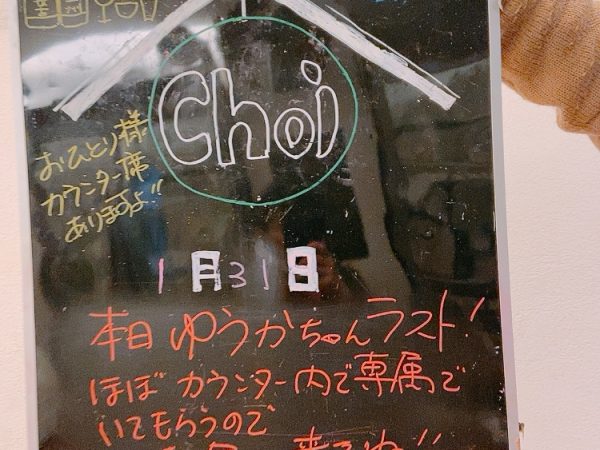 Choi
おひとり様
カウンター席
あります!!
1月31日
本日ゆうかちゃんラスト!
ほぼカウンター内で専属で
いてもらうので